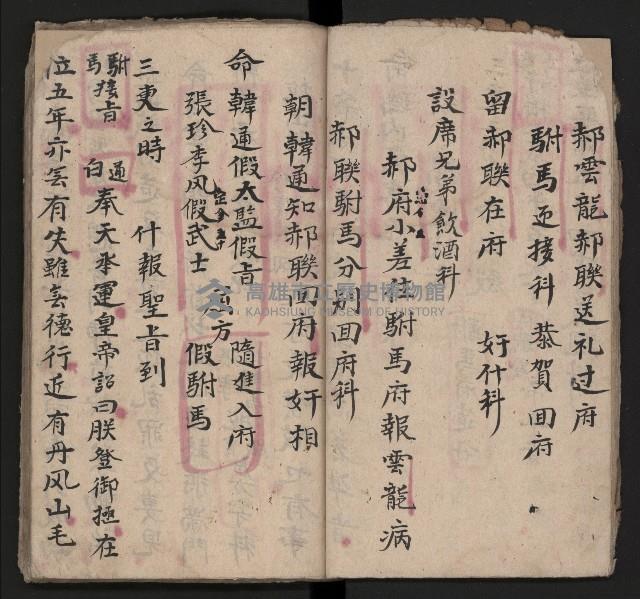 郝雲龍郝聯送礼过府
駙馬迎接科 恭賀回府
留郝聯在府 奸什科
設席兄弟飲酒科
郝府小差往駙馬府報雲龍病
郝聯駙馬分別回府科
朝韓通知郝聯回府報奸相
命韓通假太監假旨 隨進入府
張珍李风假武士 假駙馬
三更之時 什報聖旨到
駙馬接旨 通白 奉天承運皇帝詔曰朕登御極在
位五年亦無有失雖無德行近有丹风山毛
高雄市立歷史博物館
KAOHSIUNG MUSEUM OF HISTORY